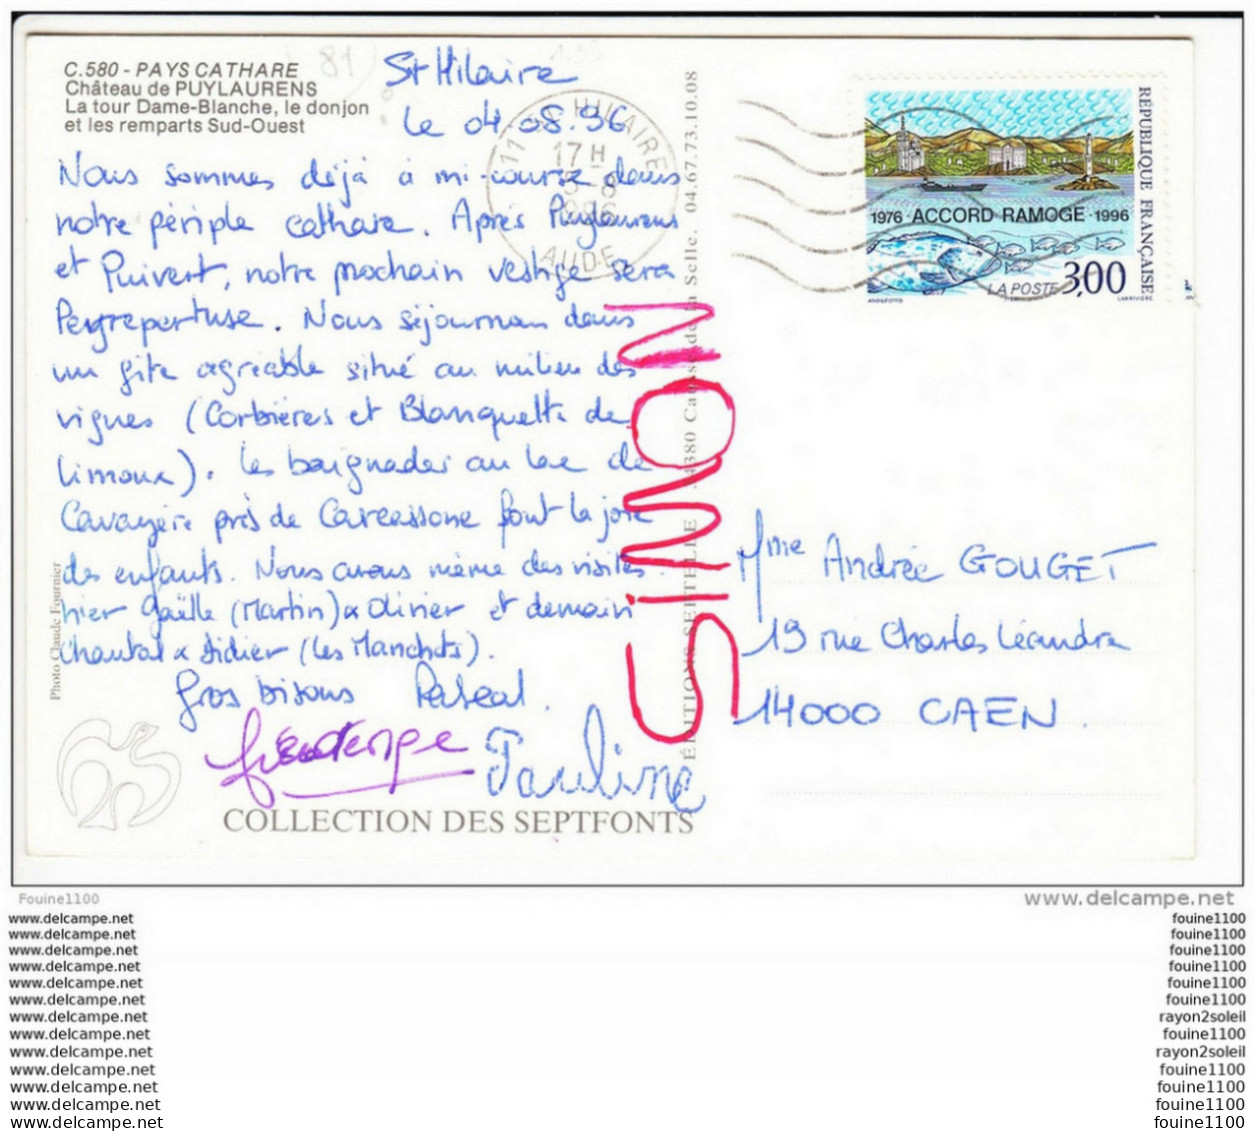 C.580 - PAYS CATHARE
Château de PUYLAURENS
La tour Dame-Blanche, le donjon
et les remparts Sud-Ouest
81
St Hilaire
le 04.08.96
Nous sommes déjà à mi-course dans
notre périple cathare. Après Puylaurens
et Puivert, notre prochain vestige sera
Peyrepertuse. Nous séjournons dans
un gîte agréable situé au milieu des
vignes (Corbières et Blanquette de
Limoux). Les baignades au lac de
Cavayère près de Carcassonne font la joie
des enfants. Nous avons même des visites
hier Gaëlle (Martin) & Olivier et demain
Chantal & Didier (les Manchots).
Gros bisous Pascal.
Pauline
COLLECTION DES SEPTFONTS
Photo Claude Fournier
ÉDITIONS SEPTELIE - 34380 Causse de la Selle. 04.67.73.10.08
MOWIS
11 ST HILAIRE
17 H
5-8
1996
AUDE
RÉPUBLIQUE FRANÇAISE
1976 ACCORD RAMOGE 1996
LA POSTE 3,00
ANDREOTTO
LARRIVIÈRE
Mme Andrée GOUGET
19 rue Charles Léandre
14000 CAEN
Fouine1100
www.delcampe.net
www.delcampe.net
fouine1100
www.delcampe.net
fouine1100
www.delcampe.net
fouine1100
www.delcampe.net
fouine1100
www.delcampe.net
fouine1100
www.delcampe.net
fouine1100
www.delcampe.net
rayon2soleil
www.delcampe.net
fouine1100
www.delcampe.net
rayon2soleil
www.delcampe.net
fouine1100
www.delcampe.net
fouine1100
www.delcampe.net
fouine1100
www.delcampe.net
fouine1100